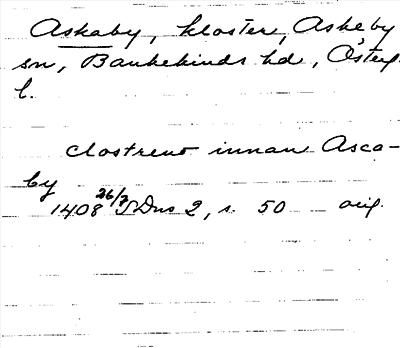 Askaby, kloster, Askeby
sn, Bankekinds hd, Östergl.
l.
clostreno innan Asca-
by
1408 26/7 SDns 2, s. 50 orig.